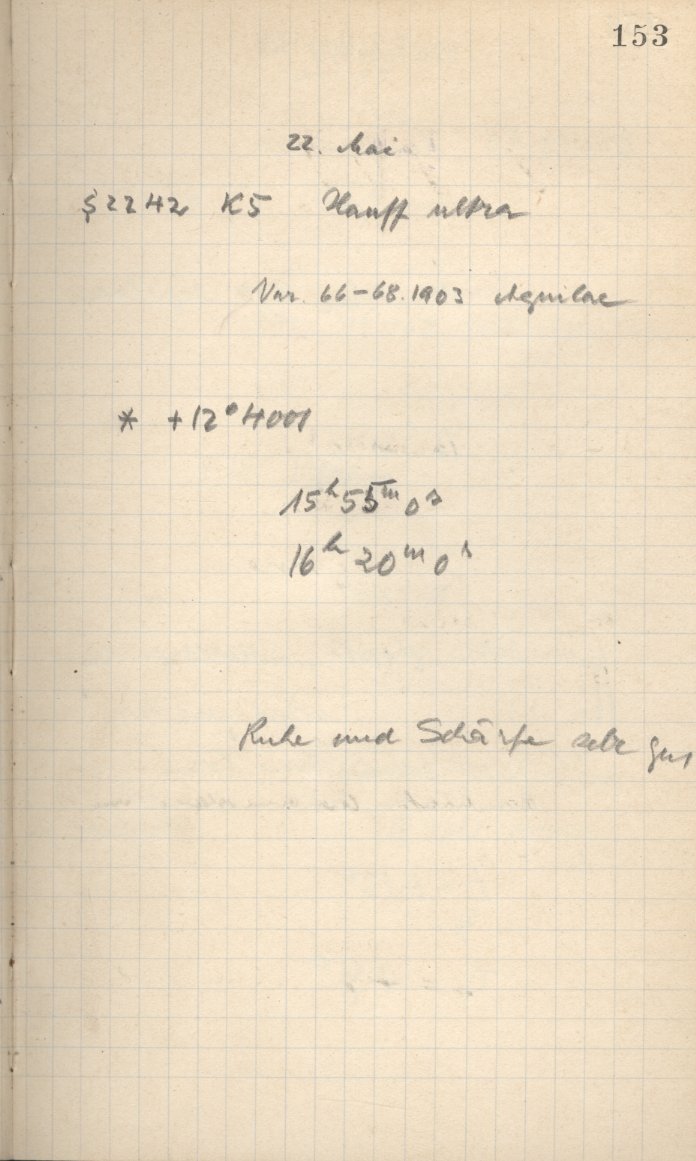 153
22. Mai
S 2242 K5 Hauff ultra
Var. 66-68.1903 Aquilae
* +12° 4001
15h 55m 0s
16h 20m 0s
Ruhe und Schärfe sehr gut